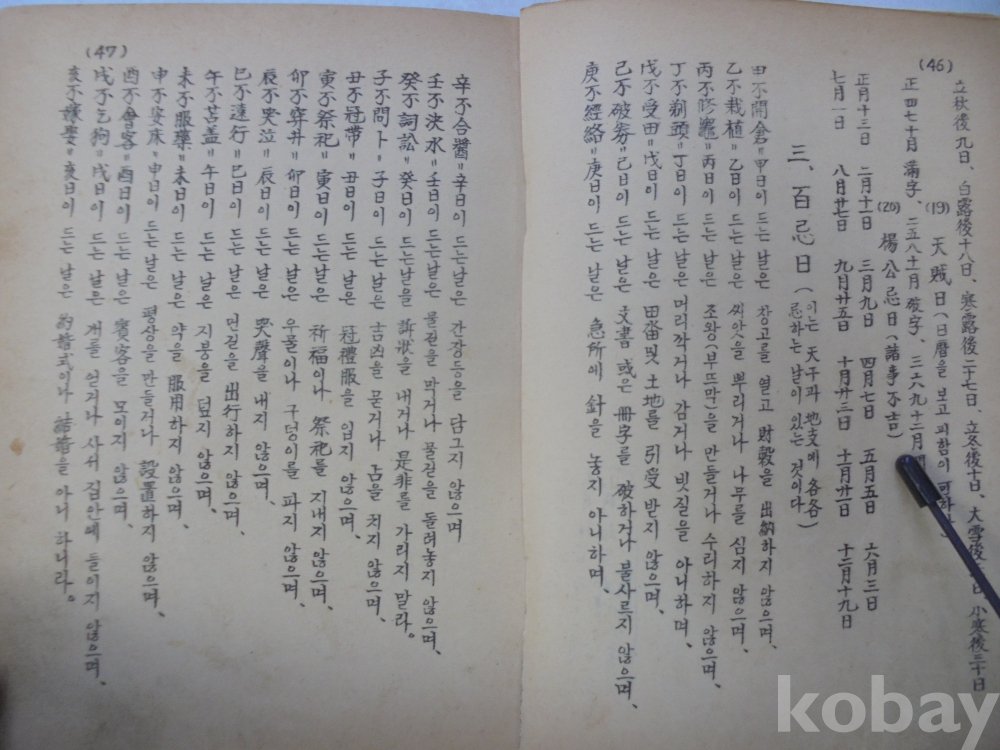 (46)
立秋後九日、白露後十八日、寒露後二十七日、立冬後十日、大雪後 小寒後三十日
(19) 天贱日(日曆을 보고 피함이 可하
正四七十月 滿字、二五八十一月 破字、三六九十二月
(20) 楊公忌日(諸事不吉)
正月十三日 二月十一日 三月九日 四月七日 五月五日 六月三日
七月一日 八月廿七日 九月廿五日 十月廿三日 十一月廿一日 十二月十九日
三、百忌日(이는 天干과 地支에 各各 忌하는 날이 있는 것이다)
甲不開倉=甲日이 드는 날은 창고를 열고 財穀을 出納하지 않으며、
乙不栽植=乙日이 드는 날은 씨앗을 뿌리거나 나무를 심지 않으며、
丙不修竈=丙日이 드는 날은 조왕(부뜨막)을 만들거나 수리하지 않으며、
丁不剃頭=丁日이 드는 날은 머리깍거나 감거나 빗질을 아니하며、
戊不受田=戊日이 드는 날은 田畓및 土地를 引受 받지 않으며、
己不破券=己日이 드는 날은 文書 或은 冊字를 破하거나 불사르지 않으며、
庚不經絡=庚日이 드는 날은 急所에 針을 놓지 아니하며、
(47)
辛不合醬=辛日이 드는날은 간장등을 담그지 않으며
壬不決水=壬日이 드는날은 물걷을 막거나 물걷을 돌려놓지 않으며、
癸不詞訟=癸日이 드는날을 訴狀을 내거나 是非를 가리지 말라。
子不問卜=子日이 드는 날은 吉凶을 묻거나 占을 치지 않으며、
丑不冠帶=丑日이 드는 날은 冠禮服을 입지 않으며、
寅不祭祀=寅日이 드는날은 祈福이나 祭祀를 지내지 않으며、
卯不穿井=卯日이 드는 날은 우물이나 구덩이를 파지 않으며、
辰不哭泣=辰日이 드는 날은 哭聲을 내지 않으며、
巳不遠行=巳日이 드는 날은 먼길을 出行하지 않으며、
午不苫盖=午日이 드는 날은 지붕을 덮지 않으며、
未不服藥=未日이 드는 날은 약을 服用하지 않으며、
申不安床=申日이 드는 날은 평상을 만들거나 設置하지 않으며、
酉不會客=酉日이 드는 날은 賓客을 모이지 않으며、
戌不乞狗=戌日이 드는 날은 개를 얻거나 사서 집안에 들이지 않으며、
亥不嫁娶=亥日이 드는 날은 約婚式이나 結婚을 아니 하니라。
kobay